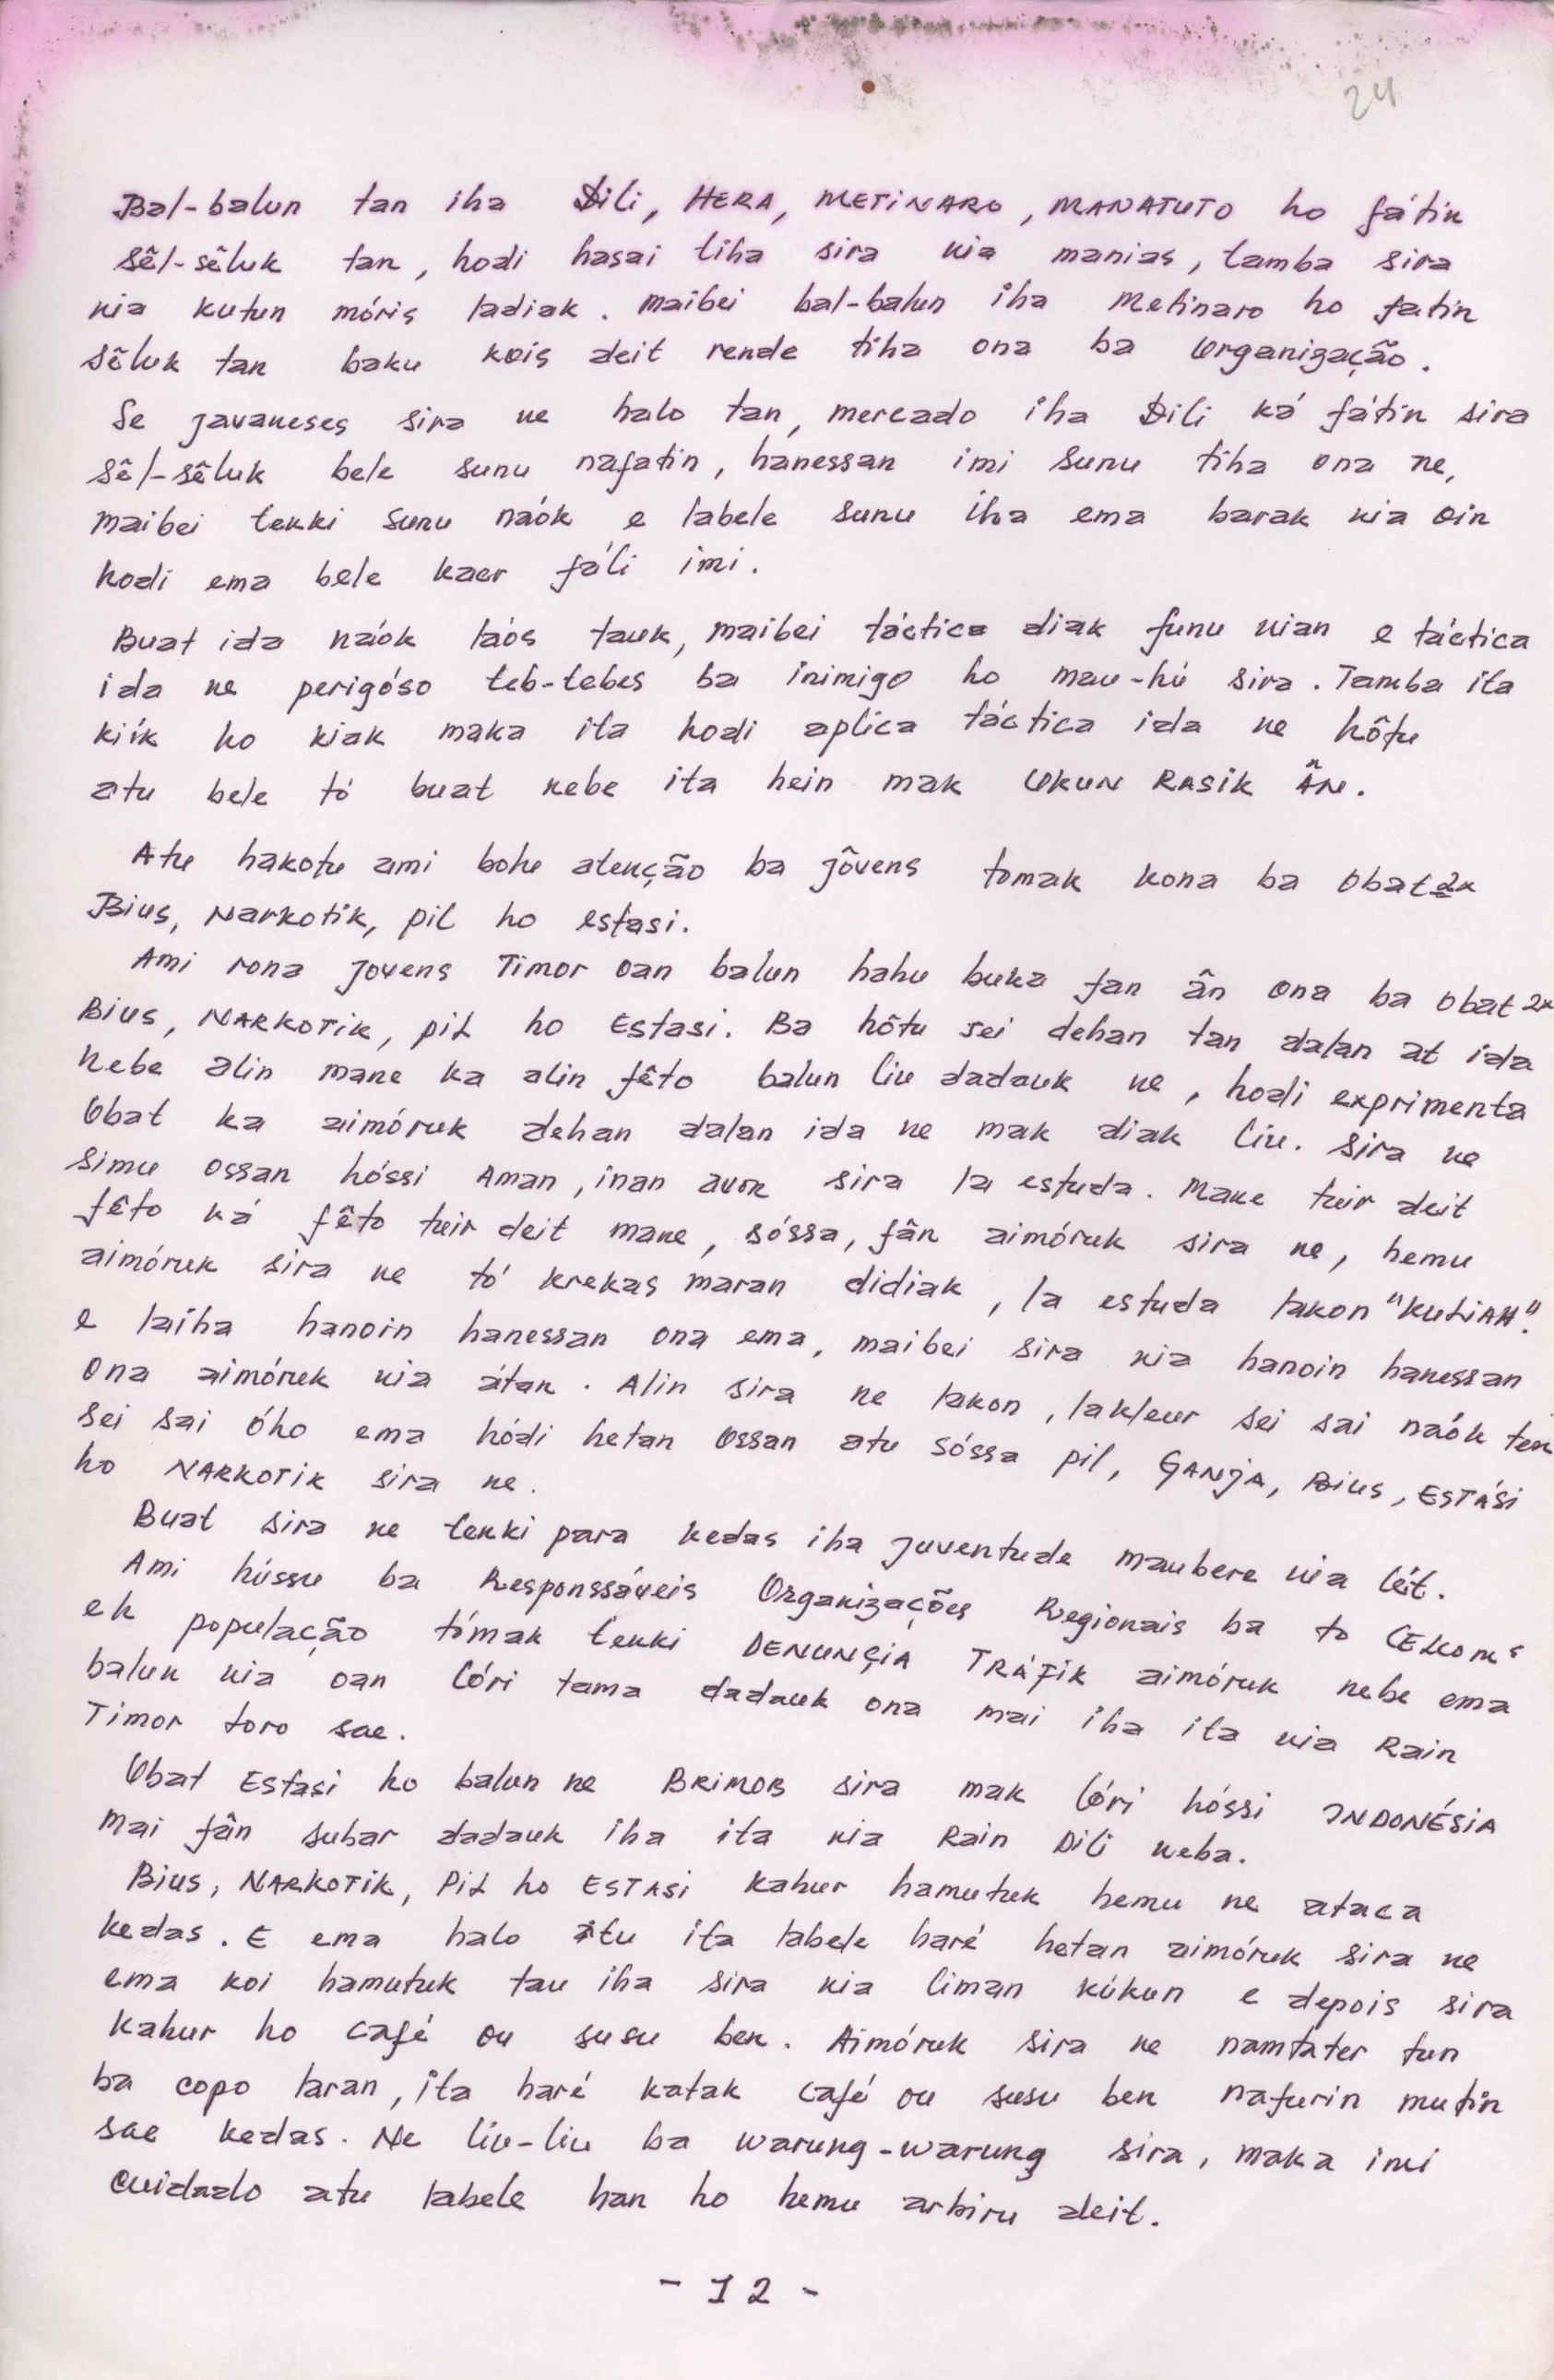 24
Bal-balun tan iha Dili, HERA, METINARO, MANATUTO ho fátin
sêl-sêluk tan, hodi hasai tiha sira nia manias, tamba sira
nia kutun móris ladiak. Maibei bal-balun iha Metinaro ho fatin
sêluk tan baku kois deit rende tiha ona ba Organização.
Se javaneses sira ne halo tan, mercado iha Dili ká fátin sira
sêl-sêluk bele sunu nafatin, hanessan imi sunu tiha ona ne,
maibei tenki sunu naók e labele sunu iha ema barak nia oin
hodi ema bele kaer fáli imi.
Buat ida naók laós tauk, maibei táctica diak funu nian e táctica
ida ne perigóso teb-tebes ba inimigo ho mau-hú sira. Tamba ita
kiík ho kiak maka ita hodi aplica táctica ida ne hôtu
atu bele tó buat nebe ita hein mak UKUN RASIK ÂN.
Atu hakotu ami bolu atenção ba jôvens tomak kona ba Obat2x
Bius, Narkotik, pil ho estasi.
Ami rona jovens Timor oan balun hahu buka fan ân ona ba Obat 2x
Bius, NARKOTIK, PIL ho Estasi. Ba hôtu sei dehan tan dalan at ida
nebe alin mane ka alin fêto balun liu dadauk ne, hodi exprimenta
Obat ka aimóruk dehan dalan ida ne mak diak liu. Sira ne
simu ossan hóssi Aman, inan avon sira la estuda. Mane tuir deit
fêto ká fêto tuir deit mane, sóssa, fân aimóruk sira ne, hemu
aimóruk sira ne tó krekas maran didiak, la estuda lakon "KULIAH".
e laíha hanoin hanessan ona ema, maibei sira nia hanoin hanessan
ona aimóruk nia átan. Alin sira ne lakon, lakleur sei sai naók ten
sei sai óho ema hódi hetan Ossan atu sóssa pil, GANJA, Bius, ESTÁSI
ho NARKOTIK sira ne.
Buat sira ne tenki para kedas iha juventude maubere nia léit.
Ami hússu ba Responssáveis Organizações Regionais ba to CELKOMs
ek população tómak tenki DENUNÇIA TRÁFIK aimóruk nebe ema
balun nia oan lóri tama dadauk ona mai iha ita nia Rain
Timor loro sae.
Obat Estasi ho balun ne BRIMOB sira mak lóri hóssi INDONÉSIA
mai fân subar dadauk iha ita nia Rain Dili neba.
Bius, NARKOTIK, PIL ho ESTASI kahur hamutuk hemu ne ataca
kedas. E ema halo atu ita labele haré hetan aimóruk sira ne
ema koi hamutuk tau iha sira nia liman kúkun e depois sira
kahur ho café ou susu ben. Aimóruk sira ne namtater tun
ba copo laran, ita haré katak café ou susu ben nafurin mutin
sae kedas. Ne liu-liu ba warung-warung sira, maka imi
cuidado atu labele han ho hemu arbiru deit.
- 12 -